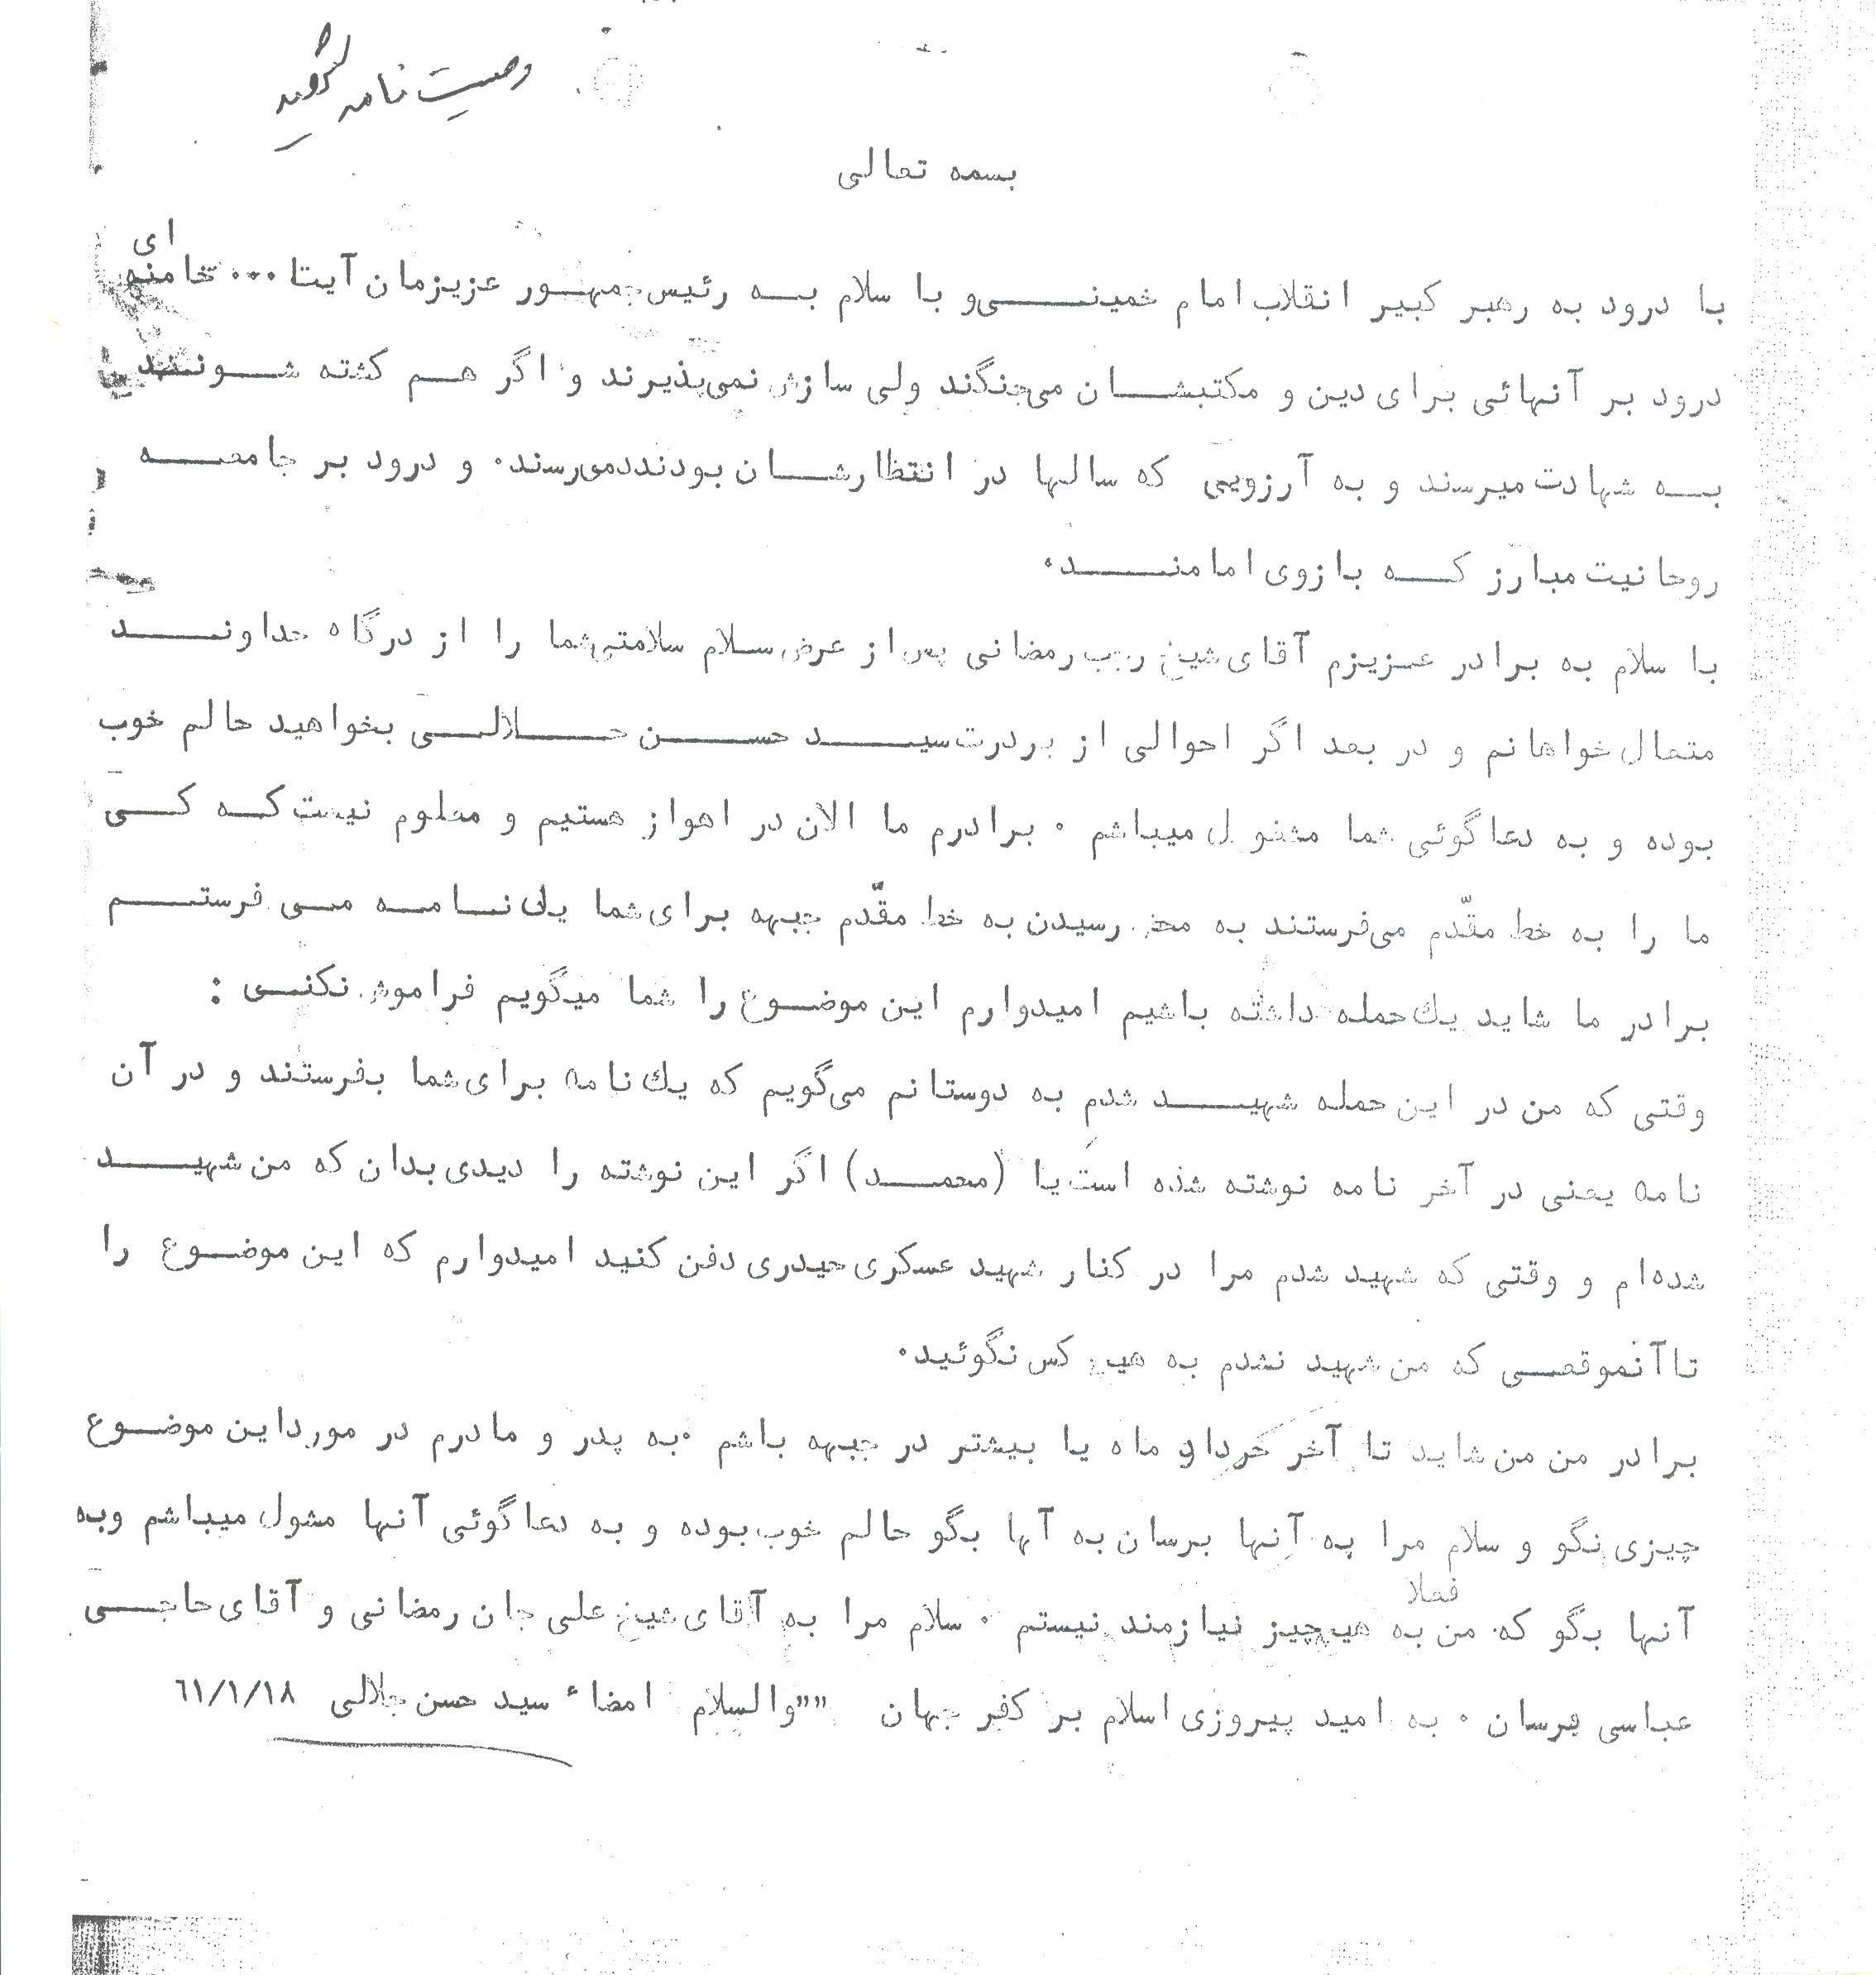 وصیت نامه شهید
بسمه تعالی
ای
با درود به رهبر کبیر انقلاب امام خمینی و با سلام به رئیس جمهور عزیزمان آیتا ... خامنه
درود بر آنهائی برای دین و مکتبشان می‌جنگند ولی سازش نمی‌پذیرند و اگر هم کشته شوند
به شهادت میرسند و به آرزویی که سالها در انتظارشان بودنددمی‌رسند. و درود بر جامعه
روحانیت مبارز که بازوی امامند.
با سلام به برادر عزیزم آقای شیخ رجب رمضانی پس از عرض سلام سلامتی شما را از درگاه خداوند
متعال خواهانم و در بعد اگر احوالی از بردرت سید حسن جلالی بخواهید حالم خوب
بوده و به دعاگوئی شما مشغول میباشم . برادرم ما الان در اهواز هستیم و معلوم نیست که کی
ما را به خط مقدّم می‌فرستند به محض رسیدن به خط مقدّم جبهه برای شما یك نامه می فرستم
برادر ما شاید یك حمله داشته باشیم امیدوارم این موضوع را شما میگویم فراموش نکنی :
وقتی که من در این حمله شهید شدم به دوستانم می‌گویم که یك نامه برای شما بفرستند و در آن
نامه یعنی در آخر نامه نوشته شده است یا (محمد) اگر این نوشته را دیدی بدان که من شهید
شده‌ام و وقتی که شهید شدم مرا در کنار شهید عسکری حیدری دفن کنید امیدوارم که این موضوع را
تا آنموقعی که من شهید نشدم به هیچ کس نگوئید.
برادر من من شاید تا آخر خرداد ماه یا بیشتر در جبهه باشم .به پدر و مادرم در مورداین موضوع
چیزی نگو و سلام مرا به آنها برسان به آنها بگو حالم خوب بوده و به دعاگوئی آنها مشول میباشم وبه
فعلا
آنها بگو که من به هیچ چیز نیازمند نیستم . سلام مرا به آقای شیخ علی جان رمضانی و آقای حاجی
عباسی برسان . به امید پیروزی اسلام بر کفر جهان "" والسلام امضاء سید حسن جلالی ٦١/١/١٨